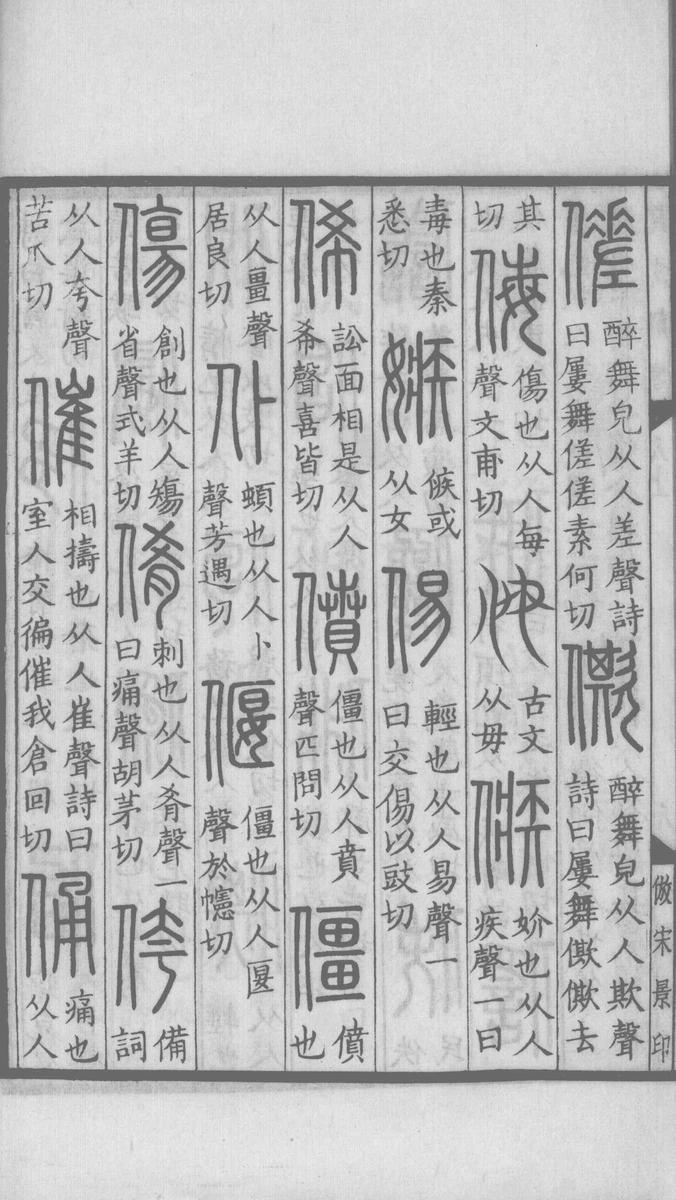 傞醉舞皃从人差聲詩曰屢舞傞傞素何切僛醉舞皃从人欺聲詩曰屢舞僛僛去
其切侮傷也从人每聲文甫切㑄古文从母㑵妎也从人疾聲一曰
毒也秦悉切嫉㑵或从女㑥輕也从人易聲一曰交㑥以豉切
俙訟面相是从人希聲喜皆切僨僵也从人賁聲匹問切僵僨也
从人畺聲居良切仆頓也从人卜聲芳遇切偃僵也从人匽聲於幰切
傷創也从人𥏻省聲式羊切倄刺也从人肴聲一曰痛聲胡茅切侉備詞
从人夸聲苦瓜切催相擣也从人崔聲詩曰室人交徧催我倉回切俑痛也从人
倣宋景印